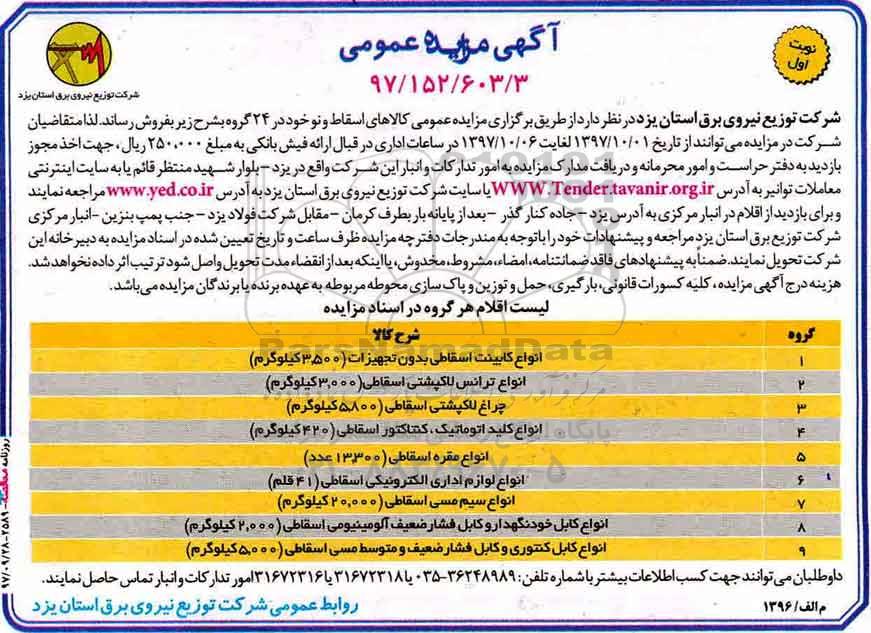 آگهی مزایده عمومی
۹۷/۱۵۲/۶۰۳/۳
نوبت
اول
شرکت توزیع نیروی برق استان یزد
شرکت توزیع نیروی برق استان یزد در نظر دارد از طریق برگزاری مزایده عمومی کالاهای اسقاط و نو خود در ۲۴ گروه بشرح زیر بفروش رساند. لذا متقاضیان
شرکت در مزایده می‌توانند از تاریخ ۱۳۹۷/۱۰/۰۱ لغایت ۱۳۹۷/۱۰/۰۶ در ساعات اداری در قبال ارائه فیش بانکی به مبلغ ۲۵۰٫۰۰۰ ریال، جهت اخذ مجوز
بازدید به دفتر حراست و امور محرمانه و دریافت مدارک مزایده به امور تدارکات و انبار این شرکت واقع در یزد - بلوار شهید منتظر قائم یا به سایت اینترنتی
معاملات توانیر به آدرس WWW.Tender.tavanir.org.ir یا سایت شرکت توزیع نیروی برق استان یزد به آدرس www.yed.co.ir مراجعه نمایند
و برای بازدید از اقلام در انبار مرکزی به آدرس یزد - جاده کنار گذر - بعد از پایانه بار بطرف کرمان - مقابل شرکت فولاد یزد - جنب پمپ بنزین - انبار مرکزی
شرکت توزیع برق استان یزد مراجعه و پیشنهادات خود را با توجه به مندرجات دفترچه مزایده ظرف ساعت و تاریخ تعیین شده در اسناد مزایده به دبیرخانه این
شرکت تحویل نمایند. ضمناً به پیشنهادهای فاقد ضمانتنامه، امضاء، مشروط، مخدوش، یا اینکه بعد از انقضاء مدت تحویل واصل شود ترتیب اثر داده نخواهد شد.
هزینه درج آگهی مزایده، کلیه کسورات قانونی، بارگیری، حمل و توزین و پاک سازی محوطه مربوطه به عهده برنده یا برندگان مزایده می‌باشد.
لیست اقلام هر گروه در اسناد مزایده
گروه شرح کالا
۱ انواع کابینت اسقاطی بدون تجهیزات (۳٫۵۰۰ کیلوگرم)
۲ انواع ترانس لاکپشتی اسقاطی (۳٫۰۰۰ کیلوگرم)
۳ چراغ لاکپشتی اسقاطی (۵٫۸۰۰ کیلوگرم)
۴ انواع کلید اتوماتیک، کنتاکتور اسقاطی (۴۲۰ کیلوگرم)
۵ انواع مقره اسقاطی (۱۳٫۳۰۰ عدد)
۶ انواع لوازم اداری الکترونیکی اسقاطی (۴۱ قلم)
۷ انواع سیم مسی اسقاطی (۲۰٫۰۰۰ کیلوگرم)
۸ انواع کابل خودنگهدار و کابل فشار ضعیف آلومینیومی اسقاطی (۲٫۰۰۰ کیلوگرم)
۹ انواع کابل کنتوری و کابل فشار ضعیف و متوسط مسی اسقاطی (۵٫۰۰۰ کیلوگرم)
داوطلبان می‌توانند جهت کسب اطلاعات بیشتر با شماره تلفن: ۳۶۲۴۸۹۸۹-۰۳۵ یا ۳۱۶۷۲۳۱۸ یا ۳۱۶۷۲۳۱۶ امور تدارکات و انبار تماس حاصل نمایند.
م الف/ ۱۳۹۶
روابط عمومی شرکت توزیع نیروی برق استان یزد
ParsNamadData
روزنامه ۲۵۸۹-۹۷/۰۹/۲۸